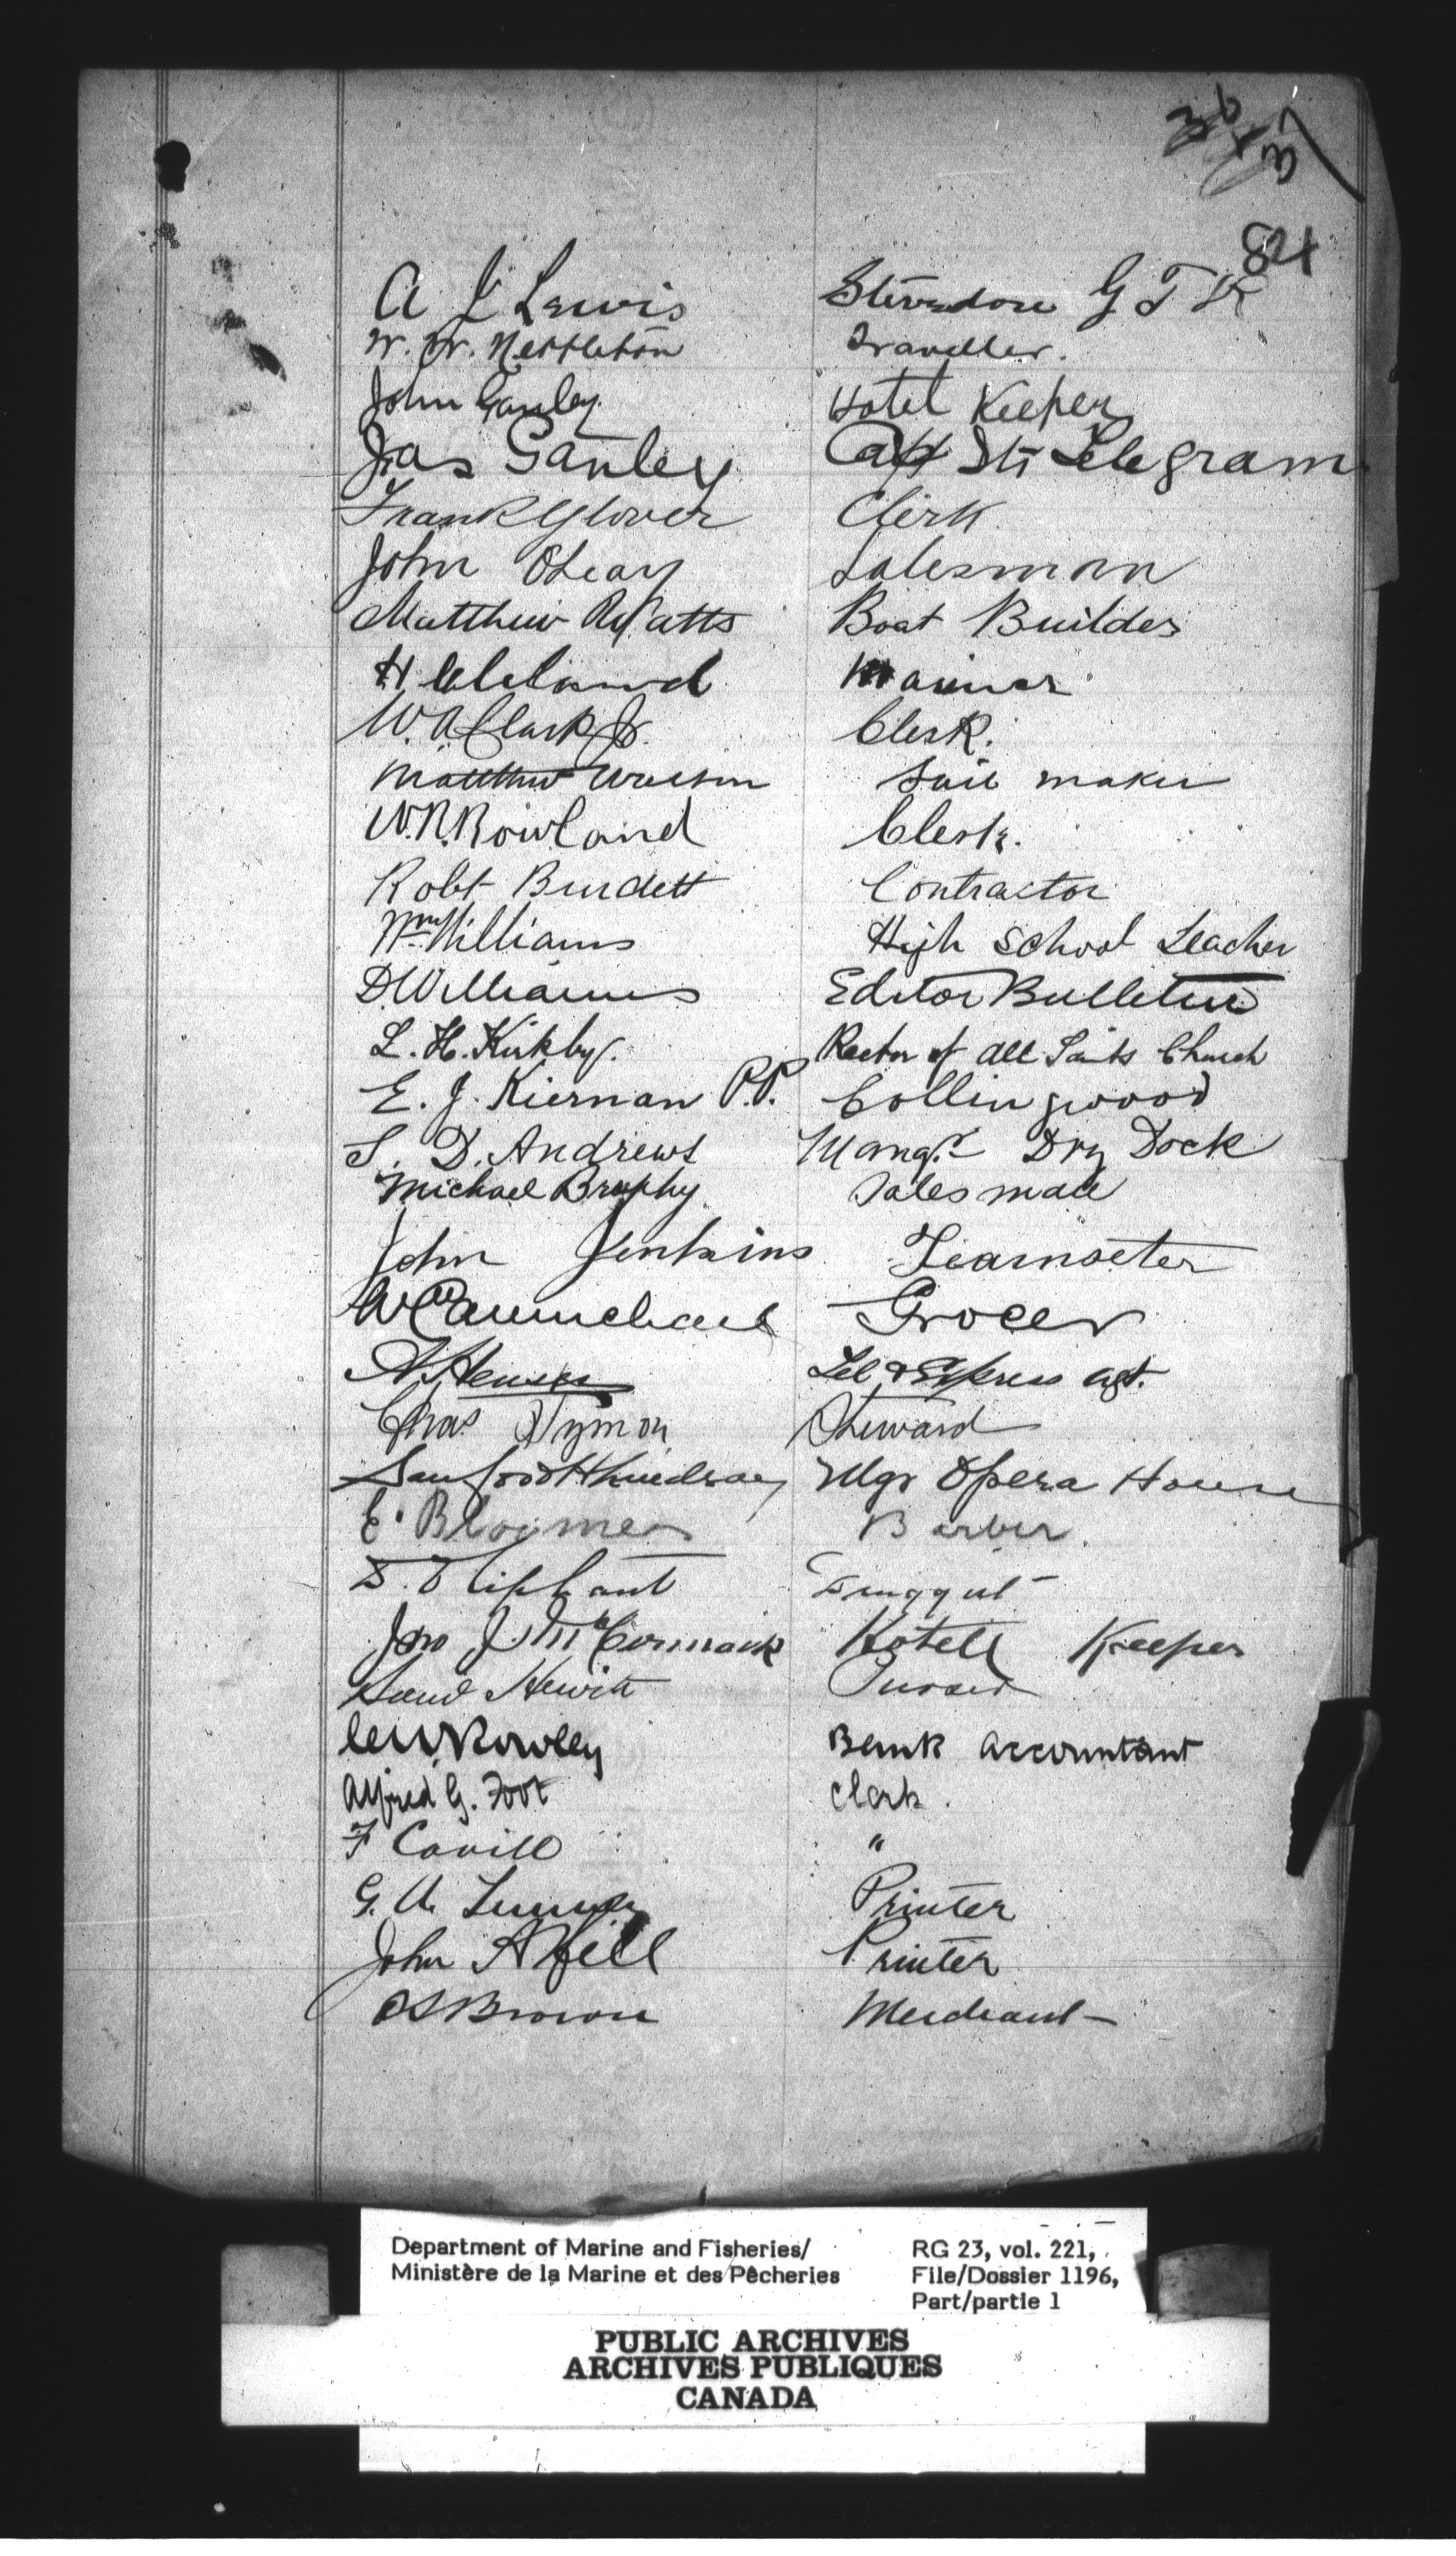 36
37
84
A J Lewis Stevedore G T R
W. W. Nettleton Traveller.
John Ganley Hotel Keeper
Jas Ganley Capt Str Telegram
Frank Glover Clerk
John OLeary Salesman
Matthew Watts Boat Builder
H Cleland Mariner
W. A Clark Jr. Clerk.
Matthew Watson Sail maker
W. R. Rowland Clerk.
Robt Burdett Contractor
Wm Williams High School Teacher
D Williams Editor Bulletin
L. H. Kirkby. Rector of All Saints Church
E. J. Kiernan P.P. Collingwood
S. D. Andrews Mangr Dry Dock
Michael Brophy Salesman
John Jenkins Teamster
W Carmichael Grocer
A. Tel & Express Agt.
Chas Wymon Steward
Mgr Opera House
E. Bloomer Barber.
D. Oliphant Druggist
Jno J. McCormack Hotell Keeper
Hewitt Purser
Rowley Bank Accountant
Alfred G. Foot Clerk.
F Cavill "
G. A. Printer
John A Hill Printer
Brown Merchant
Department of Marine and Fisheries/ RG 23, vol. 221,
Ministère de la Marine et des Pêcheries File/Dossier 1196,
Part/partie 1
PUBLIC ARCHIVES
ARCHIVES PUBLIQUES
CANADA